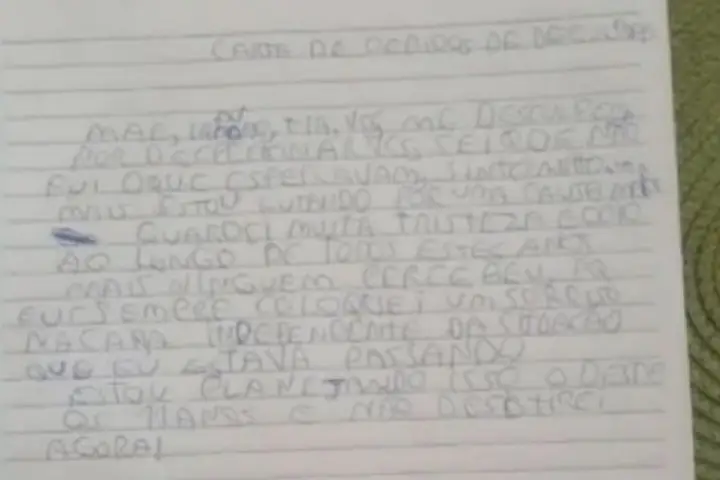 CARTA DE PEDIDOS DE
MÃE, TIA, VÓ, ME DESCULPEM
POR DECEPCIONALOS, SEI QUE NÃO
FUI OQUE ESPERAVAM, SINTO MUITO,
MAIS ESTOU LUTANDO POR UMA
GUARDEI MUITA TRISTEZA E ODIO
AO LONGO DE TODOS ESTES ANOS
MAIS NINGUEM PERCEBEU
EU SEMPRE COLOQUEI UM SORRISO
NA CARA INDEPENDENTE DA SITUAÇÃO
QUE EU ESTAVA PASSANDO
ESTOU PLANEJANDO ISSO DESDE
OS 11 ANOS E NÃO DESISTIREI
AGORA!